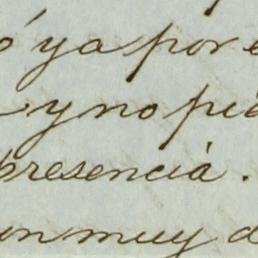 ó ya por e
y no pie
presencia.
un muy d